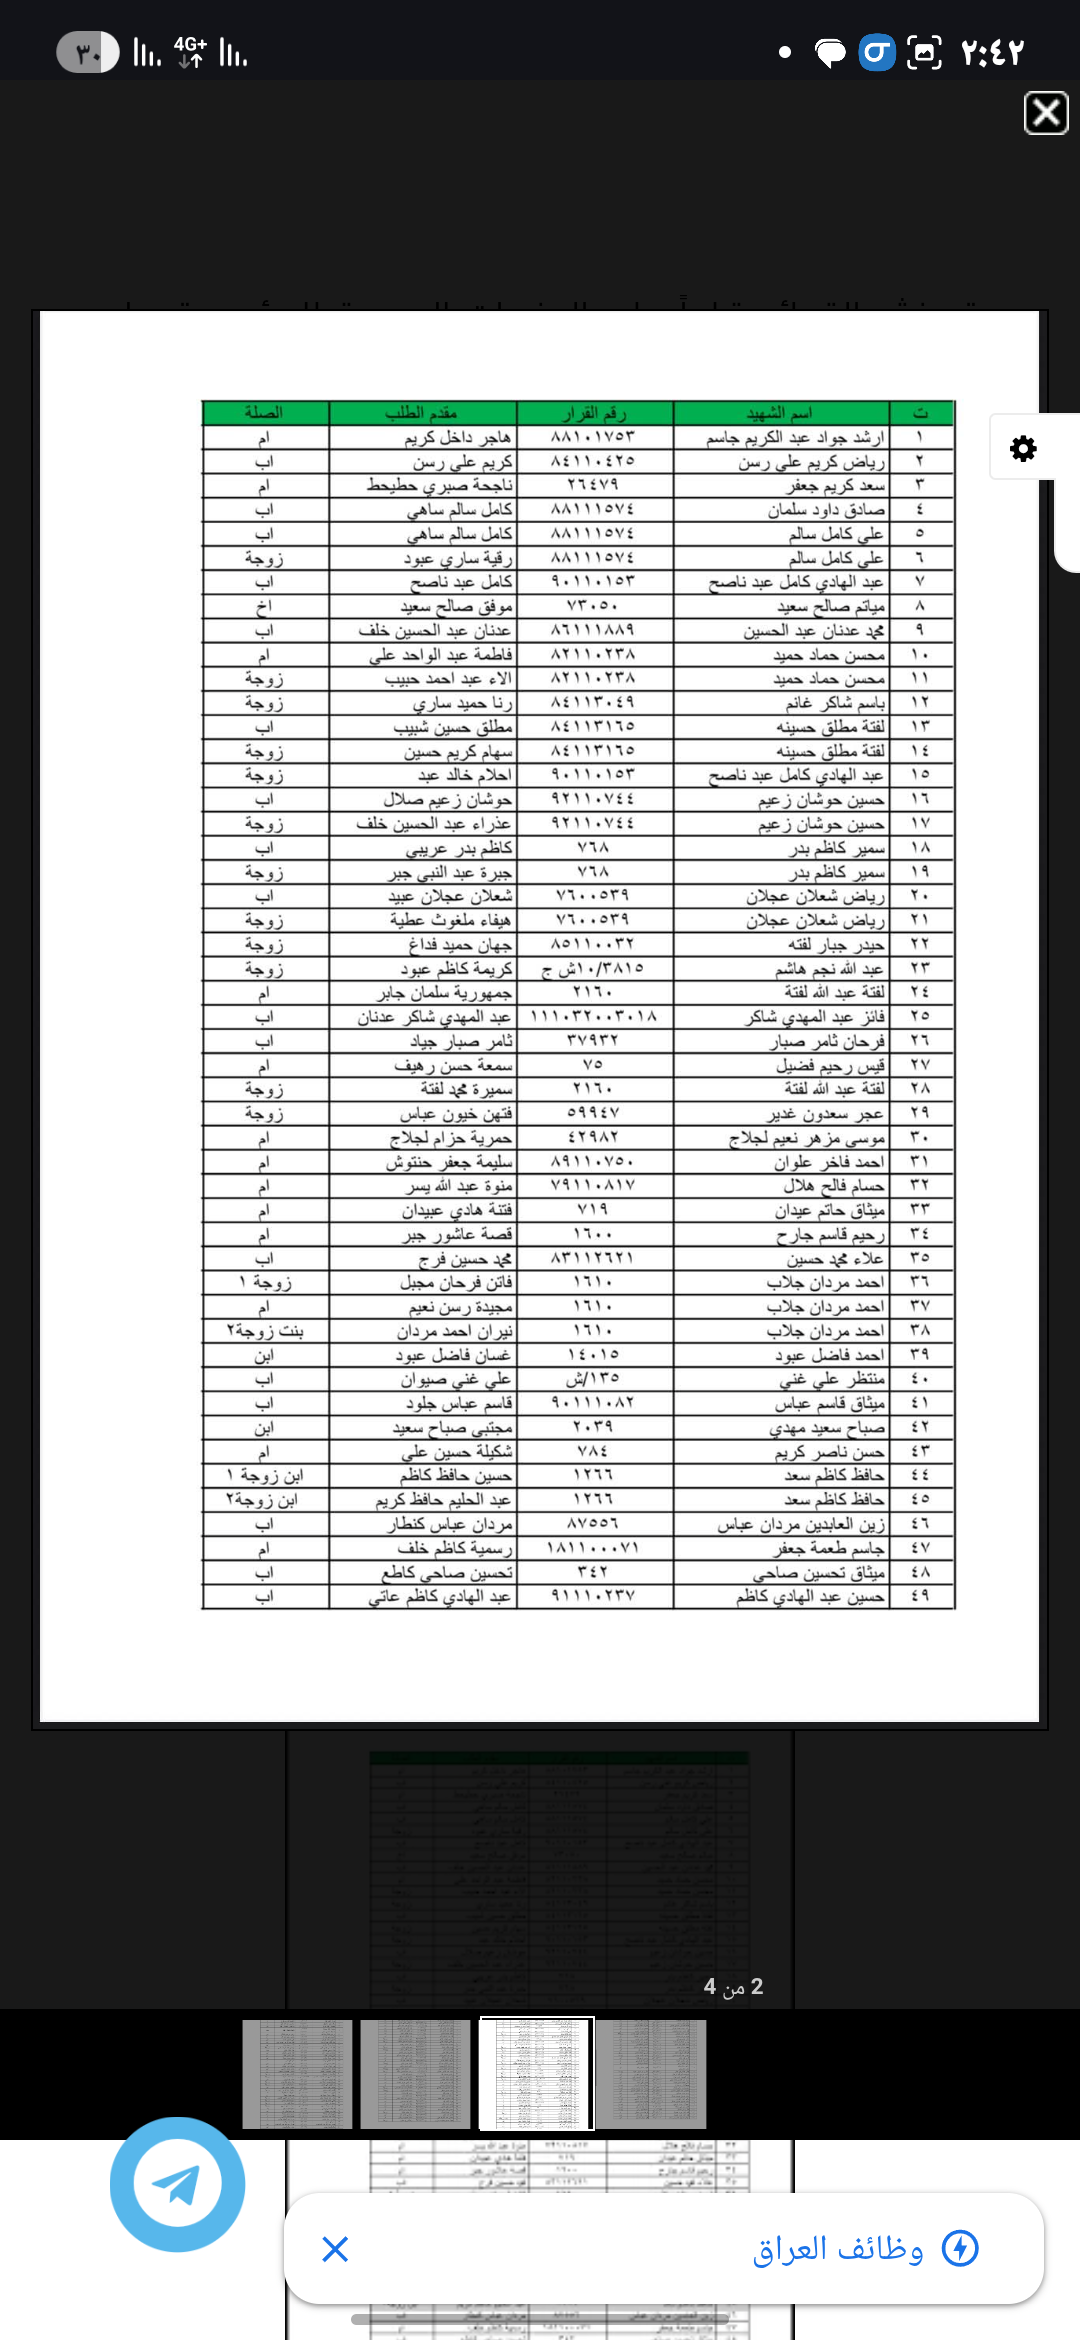 ٢:٤٢
4G+
٣٠
ت اسم الشهيد رقم القرار مقدم الطلب الصلة
١ ارشد جواد عبد الكريم جاسم ٨٨١٠١٧٥٣ هاجر داخل كريم ام
٢ رياض كريم علي رسن ٨٤١١٠٤٢٥ كريم علي رسن اب
٣ سعد كريم جعفر ٢٦٤٧٩ ناجحة صبري حطيحط ام
٤ صادق داود سلمان ٨٨١١١٥٧٤ كامل سالم ساهي اب
٥ علي كامل سالم ٨٨١١١٥٧٤ كامل سالم ساهي اب
٦ علي كامل سالم ٨٨١١١٥٧٤ رقية ساري عبود زوجة
٧ عبد الهادي كامل عبد ناصح ٩٠١١٠١٥٣ كامل عبد ناصح اب
٨ مياتم صالح سعيد ٧٣٠٥٠ موفق صالح سعيد اخ
٩ محمد عدنان عبد الحسين ٨٦١١١٨٨٩ عدنان عبد الحسين خلف اب
١٠ محسن حماد حميد ٨٢١١٠٢٣٨ فاطمة عبد الواحد علي ام
١١ محسن حماد حميد ٨٢١١٠٢٣٨ الاء عبد احمد حبيب زوجة
١٢ باسم شاكر غانم ٨٤١١٣٠٤٩ رنا حميد ساري زوجة
١٣ لفتة مطلق حسينه ٨٤١١٣١٦٥ مطلق حسين شبيب اب
١٤ لفتة مطلق حسينه ٨٤١١٣١٦٥ سهام كريم حسين زوجة
١٥ عبد الهادي كامل عبد ناصح ٩٠١١٠١٥٣ احلام خالد عبد زوجة
١٦ حسين حوشان زعيم ٩٢١١٠٧٤٤ حوشان زعيم صلال اب
١٧ حسين حوشان زعيم ٩٢١١٠٧٤٤ عذراء عبد الحسين خلف زوجة
١٨ سمير كاظم بدر ٧٦٨ كاظم بدر عريبي اب
١٩ سمير كاظم بدر ٧٦٨ جبرة عبد النبي جبر زوجة
٢٠ رياض شعلان عجلان ٧٦٠٠٥٣٩ شعلان عجلان عبيد اب
٢١ رياض شعلان عجلان ٧٦٠٠٥٣٩ هيفاء ملغوث عطية زوجة
٢٢ حيدر جبار لفته ٨٥١١٠٠٣٢ جهان حميد فداغ زوجة
٢٣ عبد الله نجم هاشم ١٠/٣٨١٥ش ج كريمة كاظم عبود زوجة
٢٤ لفتة عبد الله لفتة ٢١٦٠ جمهورية سلمان جابر ام
٢٥ فائز عبد المهدي شاكر ١١١٠٣٢٠٠٣٠١٨ عبد المهدي شاكر عدنان اب
٢٦ فرحان ثامر صبار ٣٧٩٣٢ ثامر صبار جياد اب
٢٧ قيس رحيم فضيل ٧٥ سمعة حسن رهيف ام
٢٨ لفتة عبد الله لفتة ٢١٦٠ سميرة محمد لفتة زوجة
٢٩ عجر سعدون غدير ٥٩٩٤٧ فتهن خيون عباس زوجة
٣٠ موسى مزهر نعيم لجلاج ٤٢٩٨٢ حمرية حزام لجلاج ام
٣١ احمد فاخر علوان ٨٩١١٠٧٥٠ سليمة جعفر حنتوش ام
٣٢ حسام فالح هلال ٧٩١١٠٨١٧ منوة عبد الله يسر ام
٣٣ ميثاق حاتم عيدان ٧١٩ فتنة هادي عبيدان ام
٣٤ رحيم قاسم جارح ١٦٠٠ قصة عاشور جبر ام
٣٥ علاء محمد حسين ٨٣١١٢٦٢١ محمد حسين فرج اب
٣٦ احمد مردان جلاب ١٦١٠ فاتن فرحان مجبل زوجة ١
٣٧ احمد مردان جلاب ١٦١٠ مجيدة رسن نعيم ام
٣٨ احمد مردان جلاب ١٦١٠ نيران احمد مردان بنت زوجة٢
٣٩ احمد فاضل عبود ١٤٠١٥ غسان فاضل عبود ابن
٤٠ منتظر علي غني ١٣٥/ش علي غني صيوان اب
٤١ ميثاق قاسم عباس ٩٠١١١٠٨٢ قاسم عباس جلود اب
٤٢ صباح سعيد مهدي ٢٠٣٩ مجتبى صباح سعيد ابن
٤٣ حسن ناصر كريم ٧٨٤ شكيلة حسين علي ام
٤٤ حافظ كاظم سعد ١٢٦٦ حسين حافظ كاظم ابن زوجة ١
٤٥ حافظ كاظم سعد ١٢٦٦ عبد الحليم حافظ كريم ابن زوجة٢
٤٦ زين العابدين مردان عباس ٨٧٥٥٦ مردان عباس كنطار اب
٤٧ جاسم طعمة جعفر ١٨١١٠٠٠٧١ رسمية كاظم خلف ام
٤٨ ميثاق تحسين صاحي ٣٤٢ تحسين صاحي كاطع اب
٤٩ حسين عبد الهادي كاظم ٩١١١٠٢٣٧ عبد الهادي كاظم عاتي اب
2 من 4
وظائف العراق